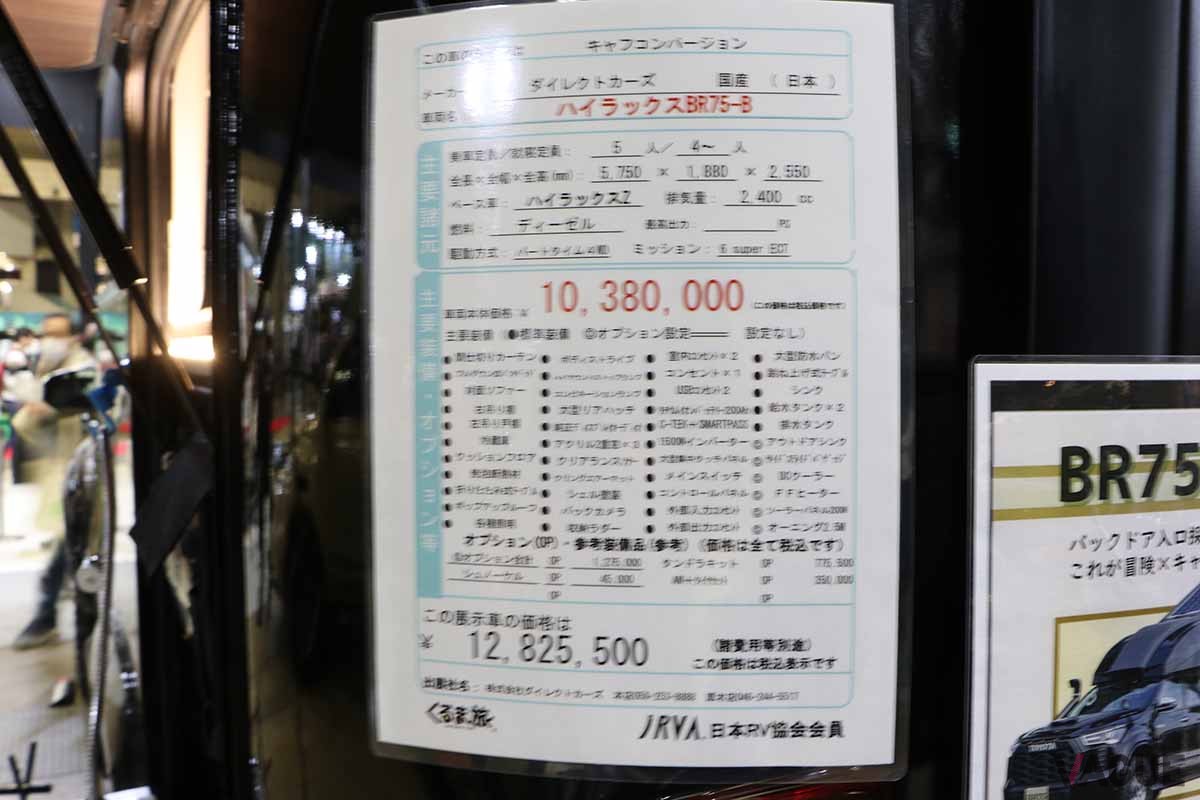 この車の
キャブコンバージョン
メーカー
ダイレクトカーズ 国産 ( 日本 )
車両名
ハイラックスBR75-B
主要諸元
乗車定員/就寝定員: 5 人/ 4~ 人
全長×全幅×全高(mm): 5,750 × 1,880 × 2,550
ベース車: ハイラックスZ 排気量: 2,400 cc
燃料: ディーゼル 最高出力: PS
駆動方式: パートタイム4駆 ミッション: 6 super ECT
主要装備・オプション等
車両本体価格 ¥ 10,380,000 (この価格は税込価格です)
主要装備 (●標準装備 ◎オプション設定 ── 設定なし)
● 間仕切りカーテン ● ボディストライプ ● 室内コンセント×2 ● 大型防水パン
コンセント×1 ● 跳ね上げ式テーブル
● 対面ソファー USBコンセント2 シンク
● 吊り棚 ● 大型リアハッチ ● 給水タンク×2
● 吊り戸棚 C-TEK+SMARTPASS 排水タンク
● 冷蔵庫 ● アクリル2重窓×3 ● 1500Wインバーター ◎ アウトドアシンク
● クッションフロア ● クリアランスソナー
● 断熱材 ● メインスイッチ ◎ DCクーラー
● 折りたたみ式テーブル ● シェル塗装 ● コントロールパネル ◎ FFヒーター
● ポップアップルーフ ● バックカメラ ● 外部入力コンセント ◎ ソーラーパネル200W
● 各種照明 ● 収納ラダー ● 外部出力コンセント ◎ オーニング2.5M
オプション(OP)・参考装備品(参考) (価格は全て税込です)
◎オプション合計 OP 1,275,000 タンドラキット OP 775,500
シュノーケル OP 45,000 AW+タイヤセット OP 350,000
OP OP
この展示車の価格は
¥ 12,825,500 (諸費用等別途)
この価格は税込表示です
出展社名: 株式会社ダイレクトカーズ
くるま旅
JRVA 日本RV協会会員
BR75
バックドア入口採
これが冒険×キャ
TOYOTA